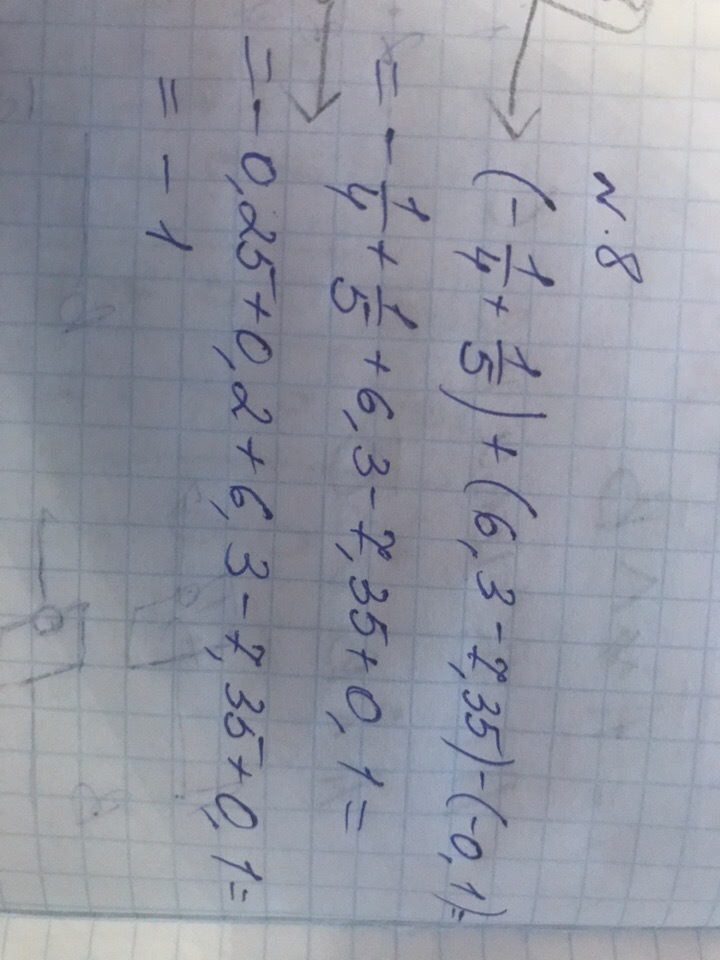 N.8
(-1/4 + 1/5) + (6,3 - 7,35) - (-0,1) =
= - 1/4 + 1/5 + 6,3 - 7,35 + 0,1 =
= - 0,25 + 0,2 + 6,3 - 7,35 + 0,1 =
= - 1